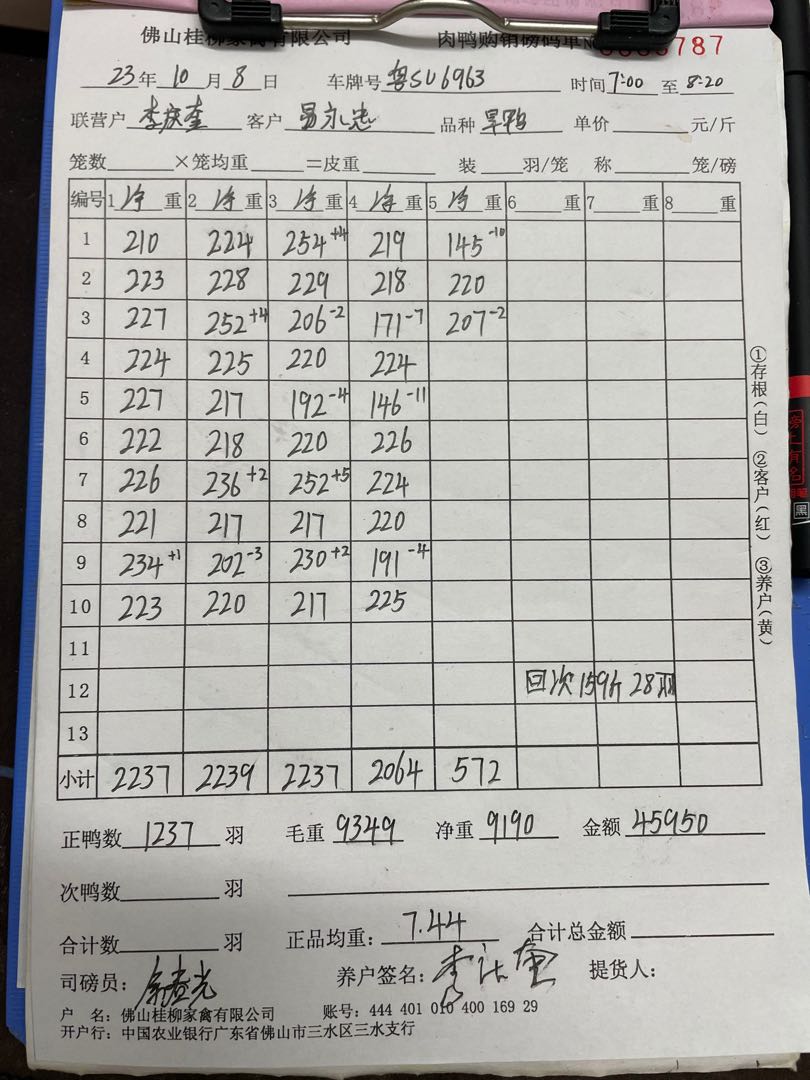 佛山桂柳家禽有限公司 肉鸭购销磅码单№ 787
23年 10 月 8 日 车牌号 粤SU6963 时间7:00 至 8:20
联营户 李庆奎 客户 易永忠 品种 旱鸭 单价 元/斤
笼数 ×笼均重 =皮重 装 羽/笼 称 笼/磅
编号 1 净 重 2 净 重 3 净 重 4 净 重 5 净 重 6 重 7 重 8 重
1 210 224 254+4 219 145-10
2 223 228 229 218 220
3 227 252+4 206-2 171-7 207-2
4 224 225 220 224
5 227 217 192-4 146-11
6 222 218 220 226
7 226 236+2 252+5 224
8 221 217 217 220
9 234+1 202-3 230+2 191-4
10 223 220 217 225
11
12 回次159斤28羽
13
小计 2237 2239 2237 2064 572
正鸭数 1237 羽 毛重 9349 净重 9190 金额 45950
次鸭数 羽
合计数 羽 正品均重: 7.44 合计总金额
司磅员: 养户签名: 提货人:
户 名: 佛山桂柳家禽有限公司 账号: 444 401 010 400 169 29
开户行: 中国农业银行广东省佛山市三水区三水支行
①存根(白) ②客户(红) ③养户(黄)